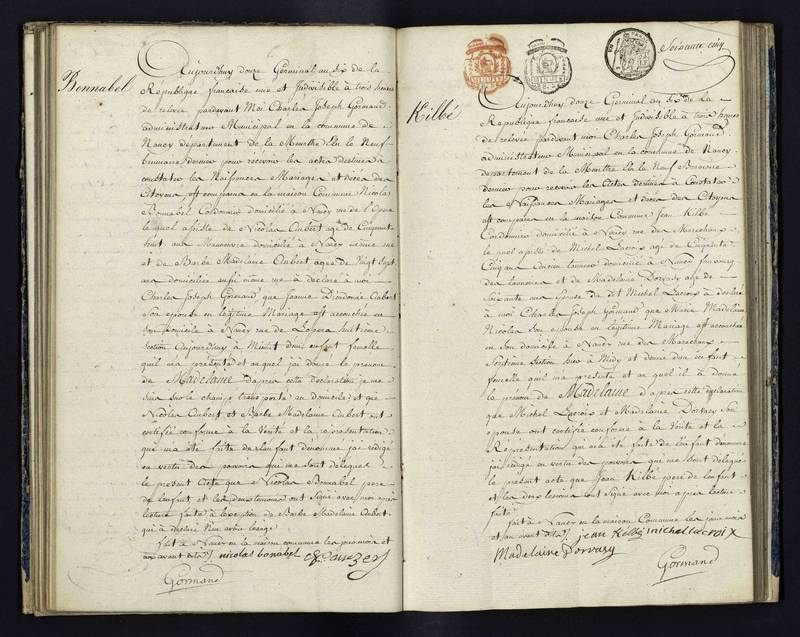 Bonnabel
Aujourdhuy douze Germinal an six de la
République francaise une et Indivisible à trois heures
de relevée pardevant Moi Charles Joseph Gormand
administrateur Municipal en la commune de
Nancy département de la Meurthe Elu le Neuf
brumaire dernier pour recevoir les actes destinés à
constater les Naissances Mariages et décès des
Citoyens est comparu en la maison Commune Nicolas
Bonnabel Cordonnier domicilié à Nancy rue de
lequel assisté de Nicolas Aubert agé de Cinquante
huit ans Manoeuvre domicilié à Nancy même rue
et de Barbe Madelaine Aubert agée de Vingt Sept
ans domiciliée aussi même rue à déclaré à moi
Charles Joseph Gormand que Jeanne Dieudonnée Aubert
Son épouse en légitime Mariage est accouchée en
Son domicile à Nancy rue de Lopera huitième
Section Aujourdhuy à Minuit d'un enfant femelle
quil ma présenté et auquel jai donné le prenom
de Madelaine daprès cette déclaration je me
Suis sur le champ transporté au domicile et que
Nicolas Aubert et Barbe Madelaine Aubert ont
certifié conforme à la Vérité et la représentation
que ma été faite de lenfant dénommé jai rédigé
en vertu des pouvoirs qui me sont délégués
le présent acte que Nicolas Bonnabel pere
de lenfant et les deux temoins ont Signé avec moi après
lecture faite à lexception de Barbe Madelaine Aubert
qui à déclaré N'en avoir lusage
fait à Nancy en la maison commune les jour mois et
an avant dits
nicolas bonabel
Gormand
Soixante cinq
Kilbé
Aujourdhuy douze Germinal an Six de la
République francoise une et Indivisible à trois heures
de relevée pardevant moi Charles Joseph Gormand
administrateur Municipal en la commune de Nancy
departement de la Meurthe Elu le Neuf Brumaire
dernier pour recevoir les actes destinés à Constater
les Naissances Mariages et décès des Citoyens
est comparu en la maison Commune Jean Kilbé
Cordonnier domicilié à Nancy rue des Marechaux
lequel assisté de Michel Lacroix agé de Cinquante
Cinq ans domicilié à Nancy faubourg
et de Madelaine Dorvasy age de
Soixante ans épouse du dit Michel Lacroix à déclaré
à moi Charles Joseph Gormand que Marie Madelaine
Nicolas Son epouse en legitime Mariage est accouchée
en Son domicile à Nancy rue des Marechaux
Septième Section hier à Midy et demie d'un enfant
femelle quil ma presenté et auquel il à donné
le prénom de Madelaine d'après cette déclaration
que Michel Lacroix et Madelaine Dorvasy Son
épouse ont certifié conforme à la Vérité et la
Représentation qui m'a été faite de lenfant denommé
jai rédigé en vertu des pouvoirs qui me sont délégués
le présent acte que Jean Kilbé pere de lenfant
et les deux temoins ont Signé avec moi apres lecture
faite
fait à Nancy en la maison Commune les jour mois
et an avant dits jean Kilbé michel lacroix
Madelaine Dorvasy
Gormand